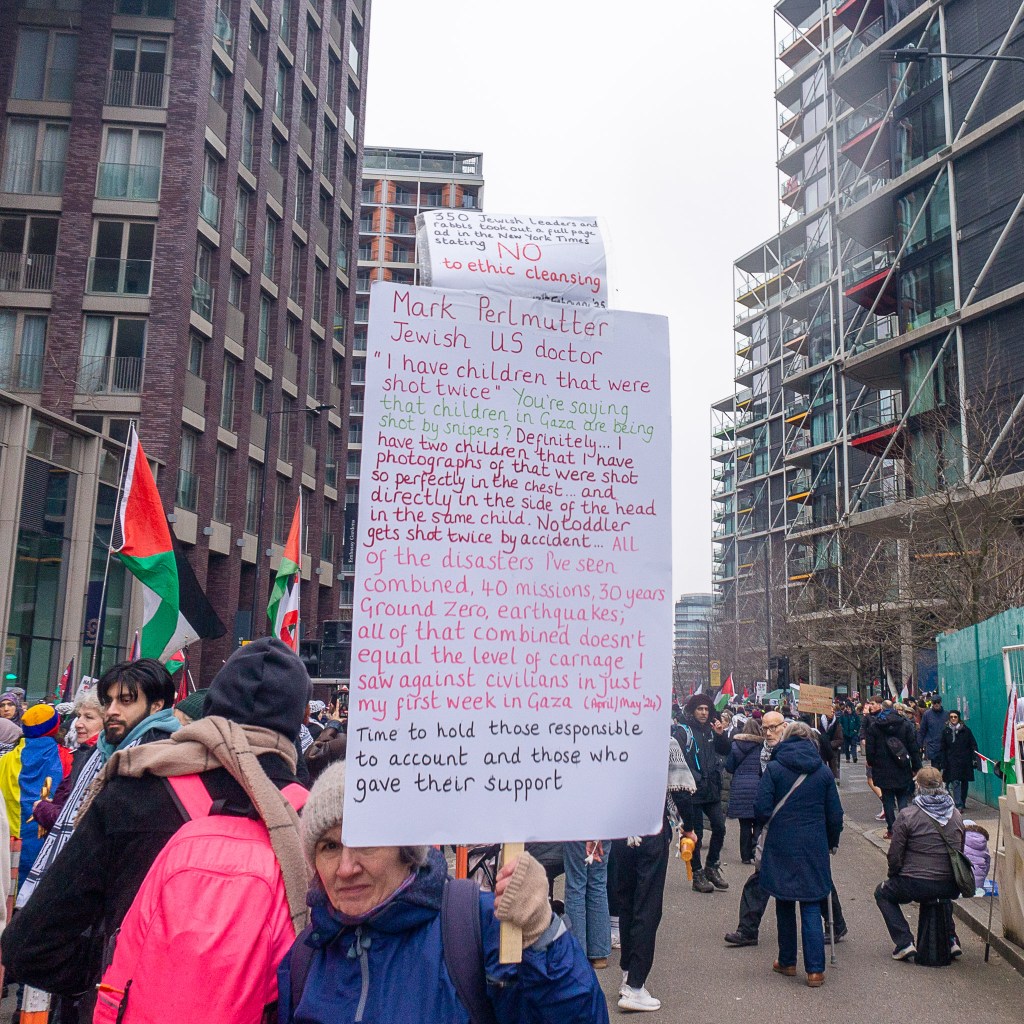 350 Jewish Leaders and
rabbis took out a full page
ad in the New York Times
stating NO
to ethic cleansing
Mark Perlmutter
Jewish US doctor
"I have children that were
shot twice" You're saying
that children in Gaza are being
shot by snipers? Definitely... I
have two children that I have
photographs of that were shot
so perfectly in the chest... and
directly in the side of the head
in the same child. No toddler
gets shot twice by accident... ALL
of the disasters I've seen
combined, 40 missions, 30 years
Ground Zero, earthquakes;
all of that combined doesn't
equal the level of carnage I
saw against civilians in just
my first week in Gaza (April/May '24)
Time to hold those responsible
to account and those who
gave their support